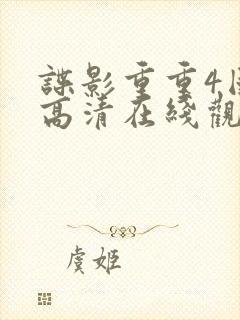 諜影重重4
高清在綫觀
虞姬